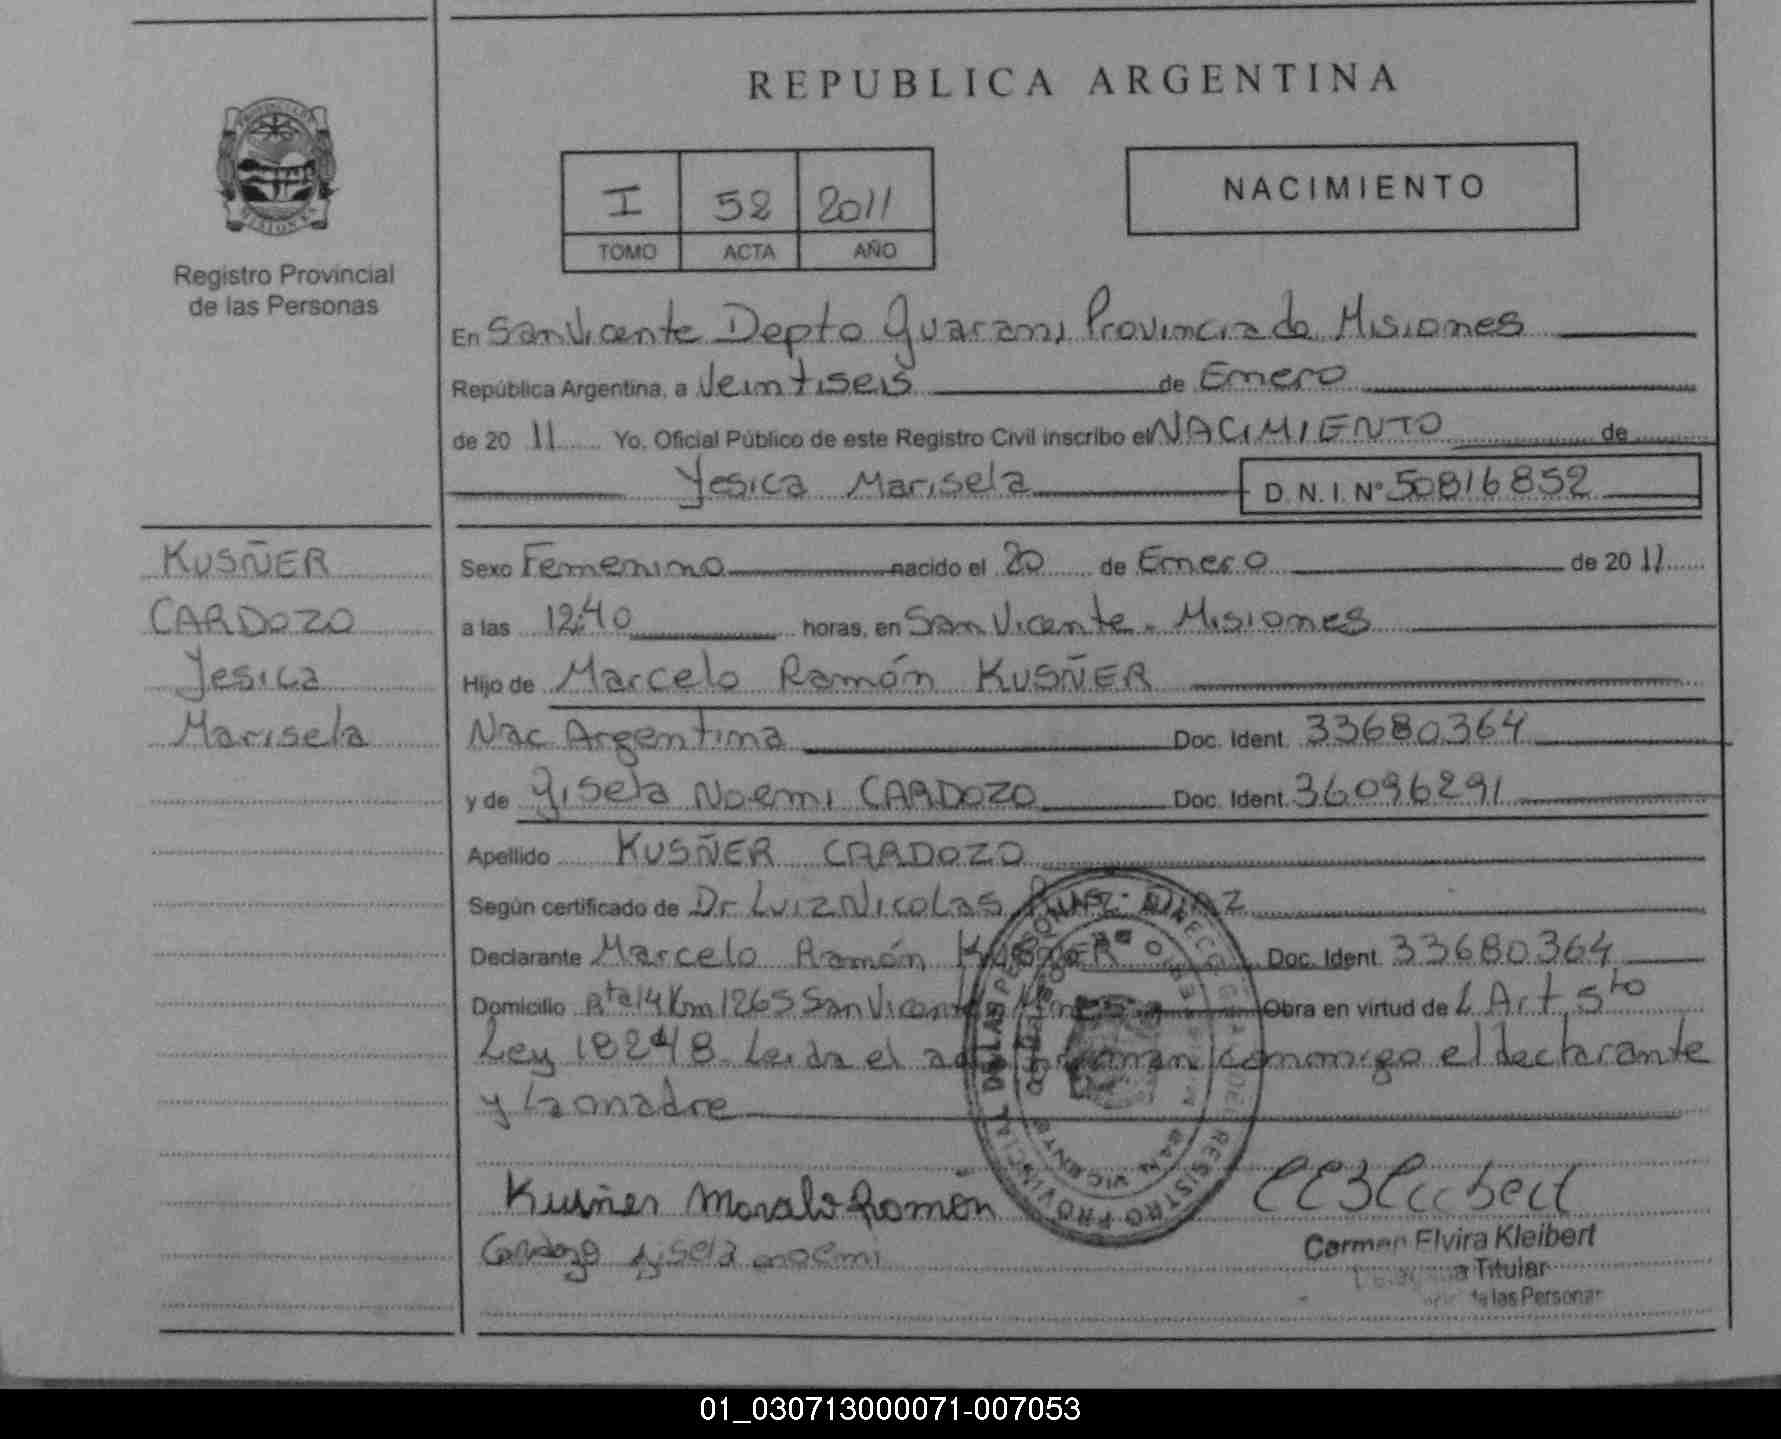 REPUBLICA ARGENTINA
PROVINCIA DE
MISIONES
Registro Provincial
de las Personas
I 52 2011
TOMO ACTA AÑO
NACIMIENTO
En San Vicente Depto Guarani, Provincia de Misiones
República Argentina, a Veintiseis de Enero
de 20 11 Yo, Oficial Público de este Registro Civil inscribo el NACIMIENTO de
Yesica Marisela D.N.I. Nº 50816852
KUSÑER
CARDOZO
Yesica
Marisela
Sexo Femenino nacido el 20 de Enero de 20 11
a las 12:40 horas, en San Vicente - Misiones
Hijo de Marcelo Ramón KUSÑER
Nac Argentina Doc. Ident. 33680364
y de Gisela Noemi CARDOZO Doc. Ident. 36096291
Apellido KUSÑER CARDOZO
Según certificado de Dr Luiz Nicolas Ruiz Diaz
Declarante Marcelo Ramón KUSÑER Doc. Ident. 33680364
Domicilio Rta 14 Km 1265 San Vicente Mnes Obra en virtud de L Art 5to
Ley 18248 Leida el firman conmigo el declarante
y la madre
Kusñer Ramón
Cardozo Gisela noemi
REGISTRO PROVINCIAL DE LAS PERSONAS
SAN VICENTE
Carmen Elvira Kleibert
a Titular
de las Personas
01_030713000071-007053